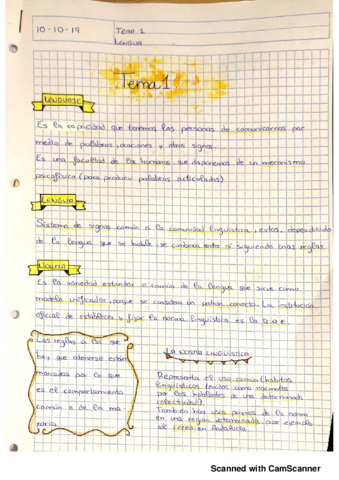 10-10-19
Tema 1
Lengua
Tema 1
LENGUAJE
Es la capacidad que tenemos las personas de comunicarnos por
medio de palabras, oraciones y otros signos.
Es una facultad de los humanos que disponemos de un mecanismo
psicofísico (para producir palabras articulados).
LENGUA
Sistema de signos común a la comunidad lingüística, estos, dependiendo
de la lengua que se hable, se combinan entre sí siguiendo unas reglas.
NORMA
Es la variedad estándar o común de la lengua que sirve como
modelo unificador, porque se considera un patrón correcto. La institución
oficial de establecer y fijar la norma lingüística es la R.A.E.
Las reglas a las que
hay que atenerse están
marcadas por lo que
es el comportamiento
común o de la ma-
yoría.
LA NORMA LINGÜÍSTICA
Representa el uso común (hábitos
lingüísticos tenidos como normales
por los hablantes de una determinada
colectividad).
También hay usos propios de la norma
en una región determinada, por ejemplo
el ceceo en Andalucía.
Scanned with CamScanner